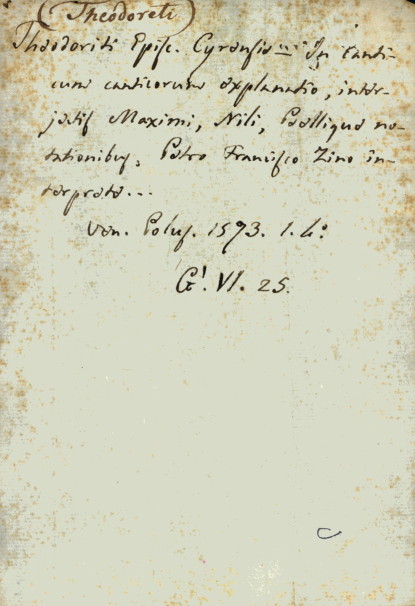 (Theodoreti)
Theodoriti Episc. Cyrensis In Canti-
cum canticorum explanatio, inter-
jectis Maximi, Nili, Psellique no-
tationibus, Petro Francisco Zino in-
terprete...
Ven. 1573. 1. 4o
G! VI. 25.